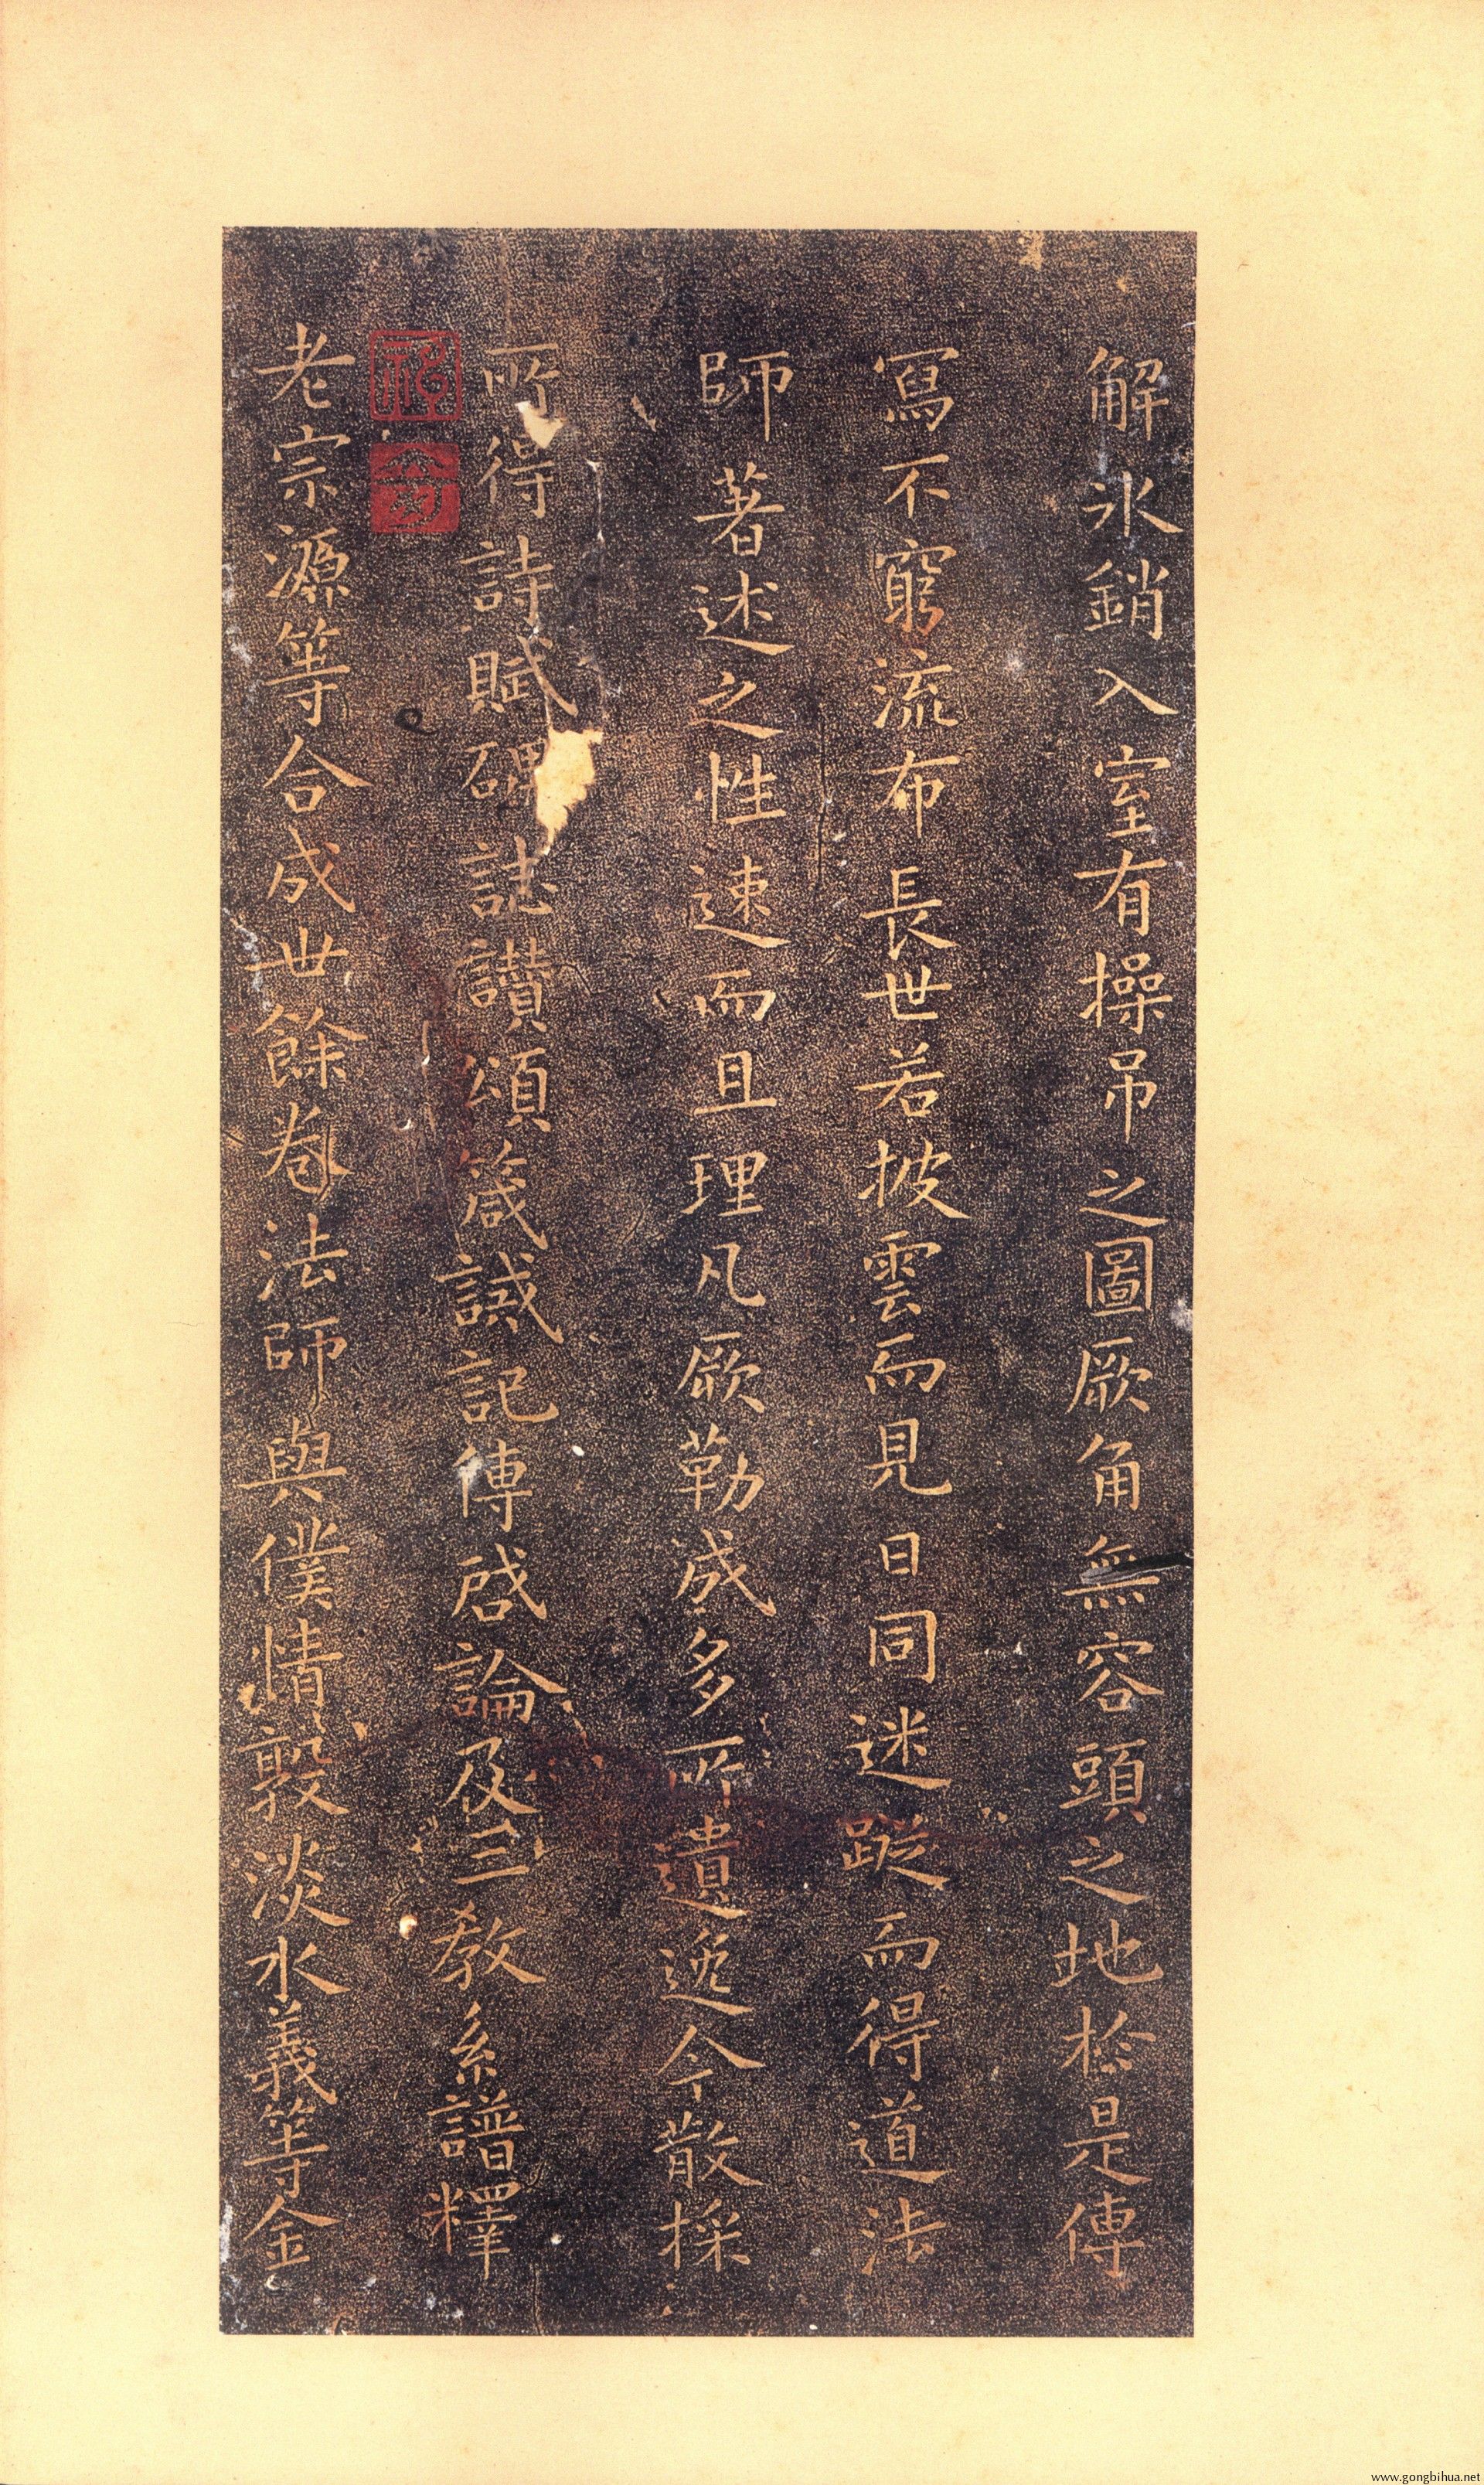 解氷銷入室有操吊之圖厥角無容頭之地檢是傳
寫不窮流布長世若披雲而見日同迷蹤而得道法
師著述之性速而且理凡厥勒成多所遺逸今散採
所得詩賦碑誌讃頌箴誡記傳啓論及三教系譜釋
老宗源等合成卅餘卷法師與僕情敦淡水義等金
www.gongbihua.net